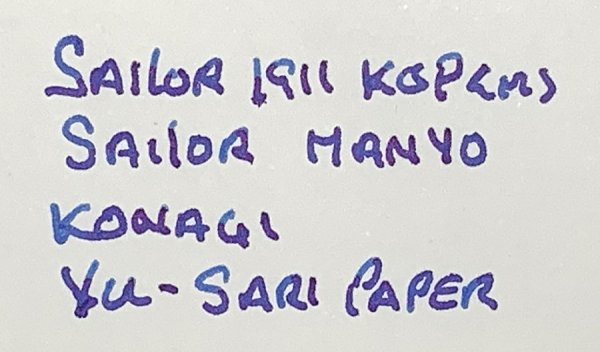 SAILOR 1911 KOP
SAILOR MANYO
KONAGI
YU-SARI PAPER